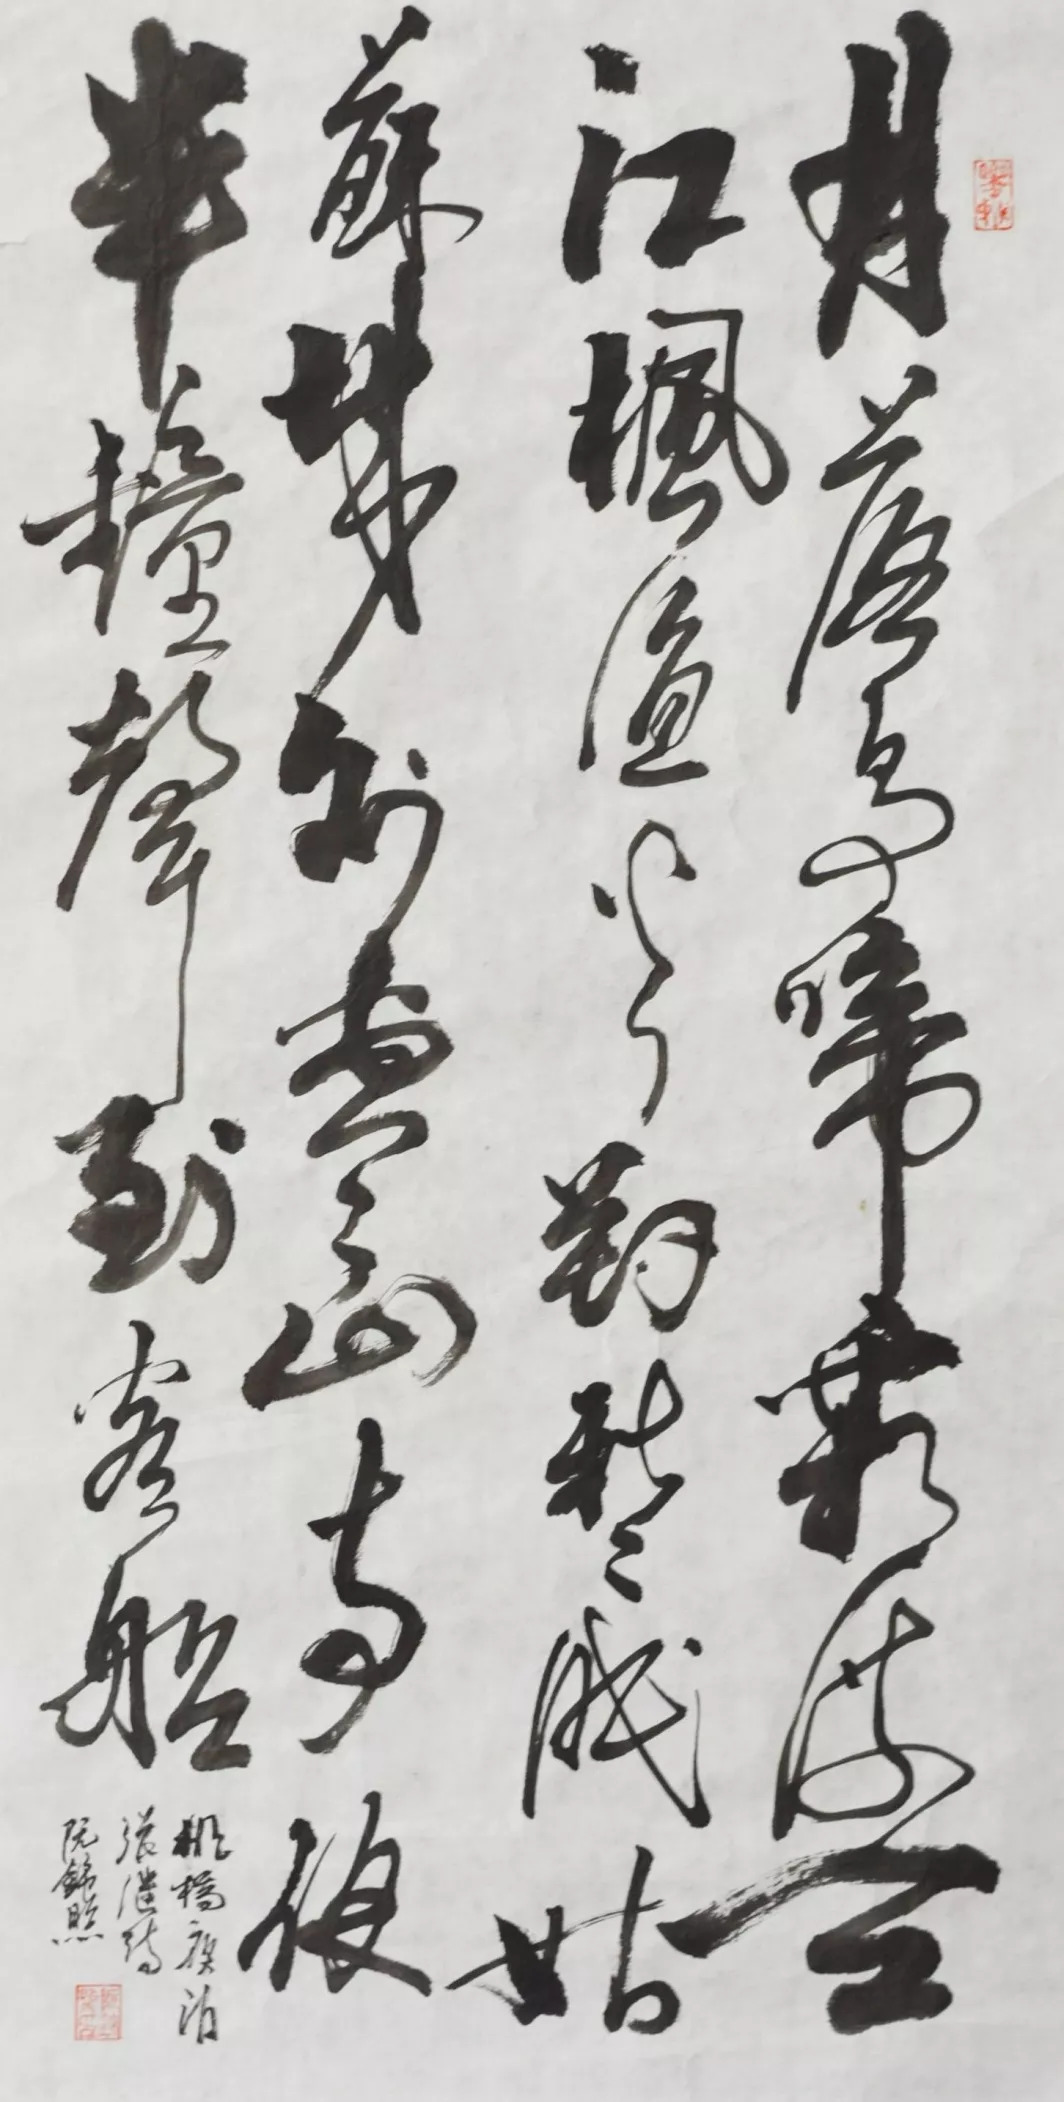 月落烏啼霜滿天
江楓漁火對愁眠姑
蘇城外寒山寺夜
半鐘聲到客船
楓橋夜泊
張継詩
阮錦照